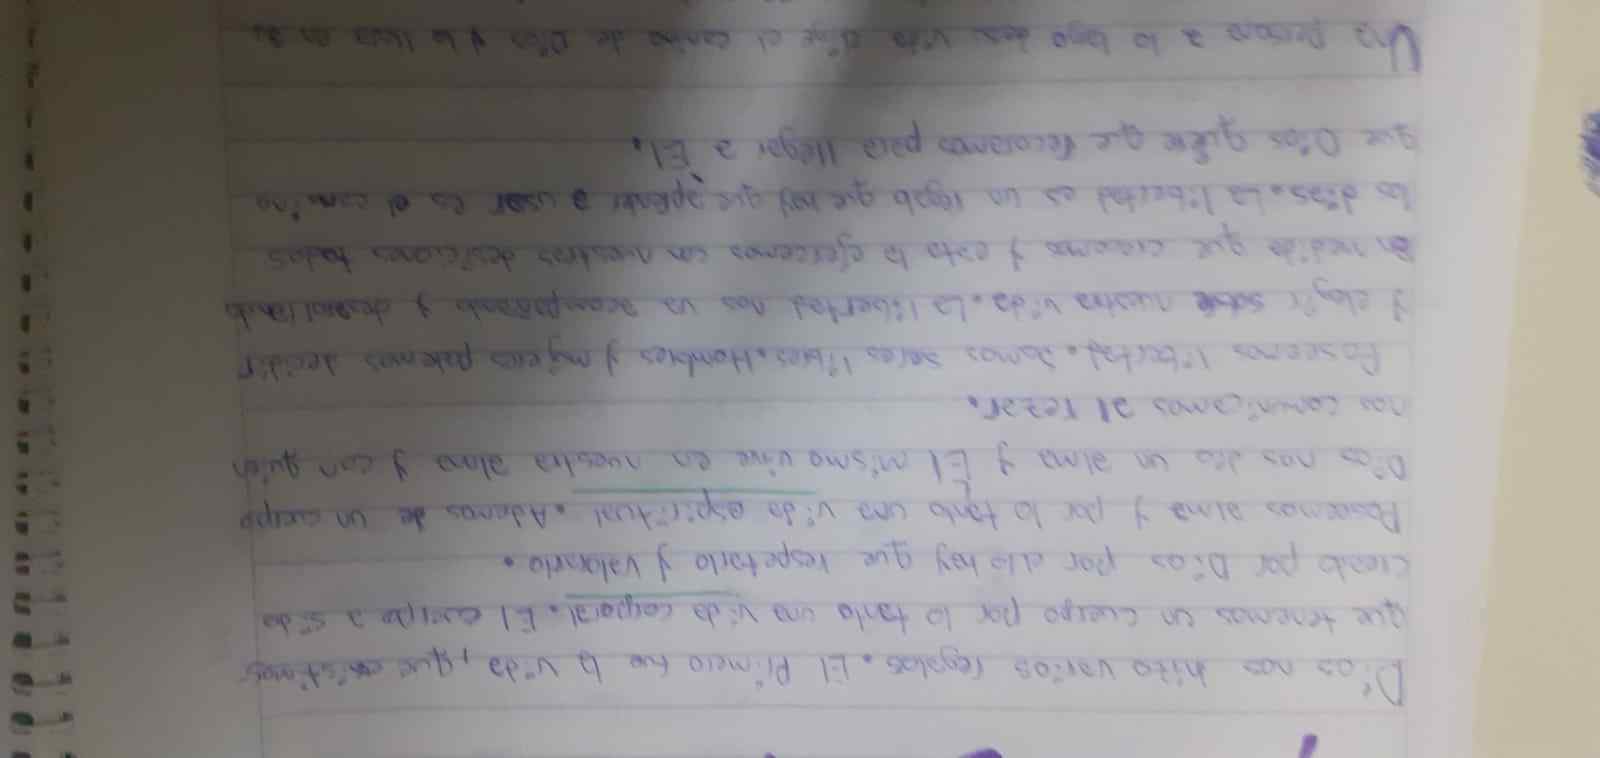 Dios nos hizo varios regalos. El Primero fue la vida, que existimos
que tenemos un cuerpo por lo tanto una vida corporal. El cuerpo a sido
creado por Dios por ello hay que respetarlo y valorarlo.
Poseemos alma y por lo tanto una vida espiritual. Ademas de un cuerpo
Dios nos dio un alma y Él mismo vive en nuestra alma y con quien
nos comunicamos al rezar.
Poseemos libertad. Somos seres libres. Hombres y mujeres podemos decidir
y elegir sobre nuestra vida. La libertad nos va acompañando y desarrollando
en medida que crecemos y esta la ejercemos con nuestras desiciones todos
los días. La libertad es un regalo que hay que aprender a usar es el camino
que Dios quiere que recorramos para llegar a Él.
Una persona a lo largo de su vida elige el camino de Dios y lo lleva en su